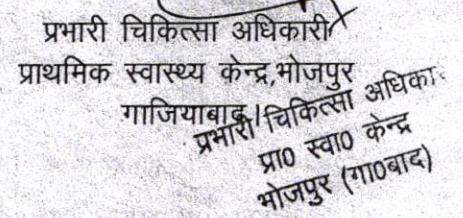 प्रभारी चिकित्सा अधिकारी
प्राथमिक स्वास्थ्य केन्द्र,भोजपुर
गाजियाबाद।
प्रभारी चिकित्सा अधिका
प्रा0 स्वा0 केन्द्र
भोजपुर (गा0बाद)